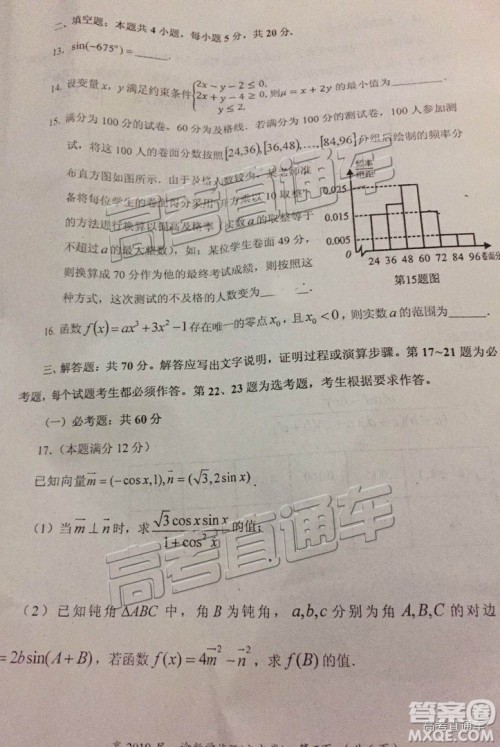 二、填空题：本题共 4 小题，每小题 5 分，共 20 分.
13. sin(−675°)=______.
14. 设变量 x，y 满足约束条件{2x−y−2≤0, 2x+y−4≥0, y≤2. 则μ=x+2y的最小值为______.
15. 满分为 100 分的试卷，60 分为及格线．若满分为 100 分的测试卷，100 人参加测
试，将这 100 人的卷面分数按照[24,36),[36,48),…,[84,96]分组后绘制的频率分
布直方图如图所示．由于及格人数较少，某老师准
备将每位学生的卷面得分采用"开方乘以 10 取整"
的方法进行换算以提高及格率（实数 a 的取整等于
不超过 a 的最大整数），如：某位学生卷面 49 分，
则换算成 70 分作为他的最终考试成绩，则按照这
种方式，这次测试的不及格的人数变为______.
频率
组距
0.025
0.015
0.005
24 36 48 60 72 84 96 卷面分
第15题图
16. 函数 f(x)=ax³+3x²−1存在唯一的零点 x₀，且 x₀<0，则实数 a 的范围为______.
三、解答题：共 70 分。解答应写出文字说明，证明过程或演算步骤。第 17~21 题为必
考题，每个试题考生都必须作答。第 22、23 题为选考题，考生根据要求作答。
（一）必考题：共 60 分
17.（本题满分 12 分）
已知向量m=(−cos x,1),n=(√3,2sin x)
（1）当m⊥n时，求 √3cos x sin x / 1+cos²x 的值；
（2）已知钝角ΔABC 中，角 B 为钝角，a,b,c 分别为角 A,B,C 的对边
=2b sin(A+B)，若函数 f(x)=4m²−n²，求 f(B) 的值.
高考直通车
高考直通车
答案圈
MXQE.COM